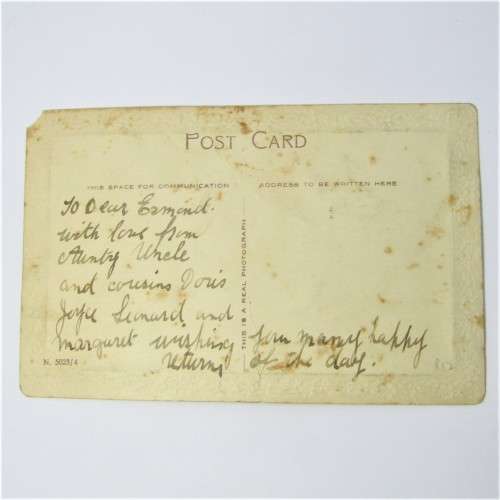 POST CARD
THIS SPACE FOR COMMUNICATION
ADDRESS TO BE WRITTEN HERE
To Dear Esmond.
with love from
Aunty Uncle
and cousins Doris
Joyce Leonard and
margaret wishing
returns
you many happy
of the day.
THIS IS A REAL PHOTOGRAPH
N. 5023/4